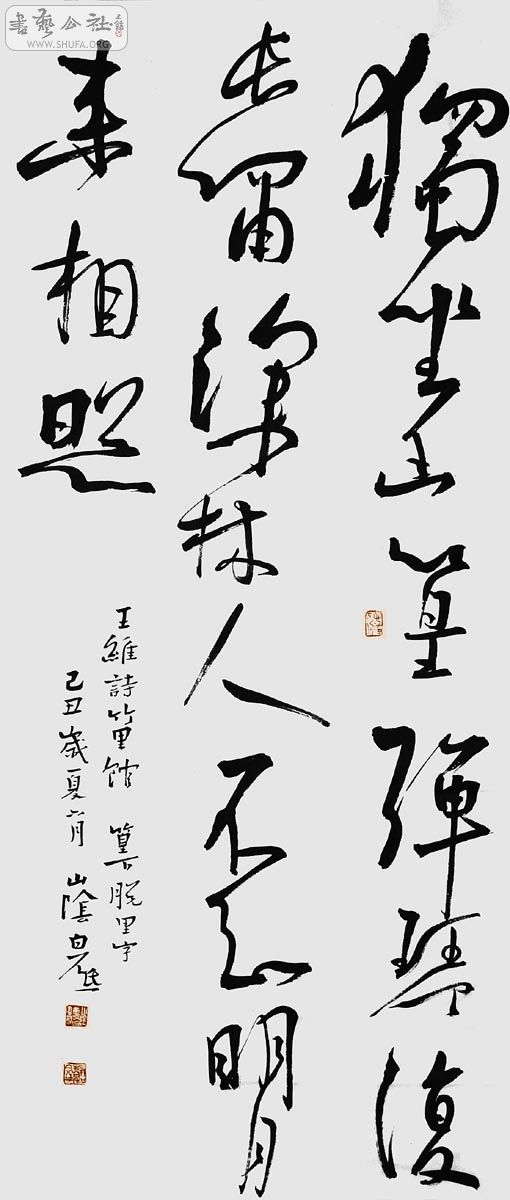 書藝公社
WWW.SHUFA.ORG
獨坐幽篁彈琴復
長嘯深林人不知明月
來相照
王維詩竹里館 篁下脱里字
己丑歲夏六月 山陰